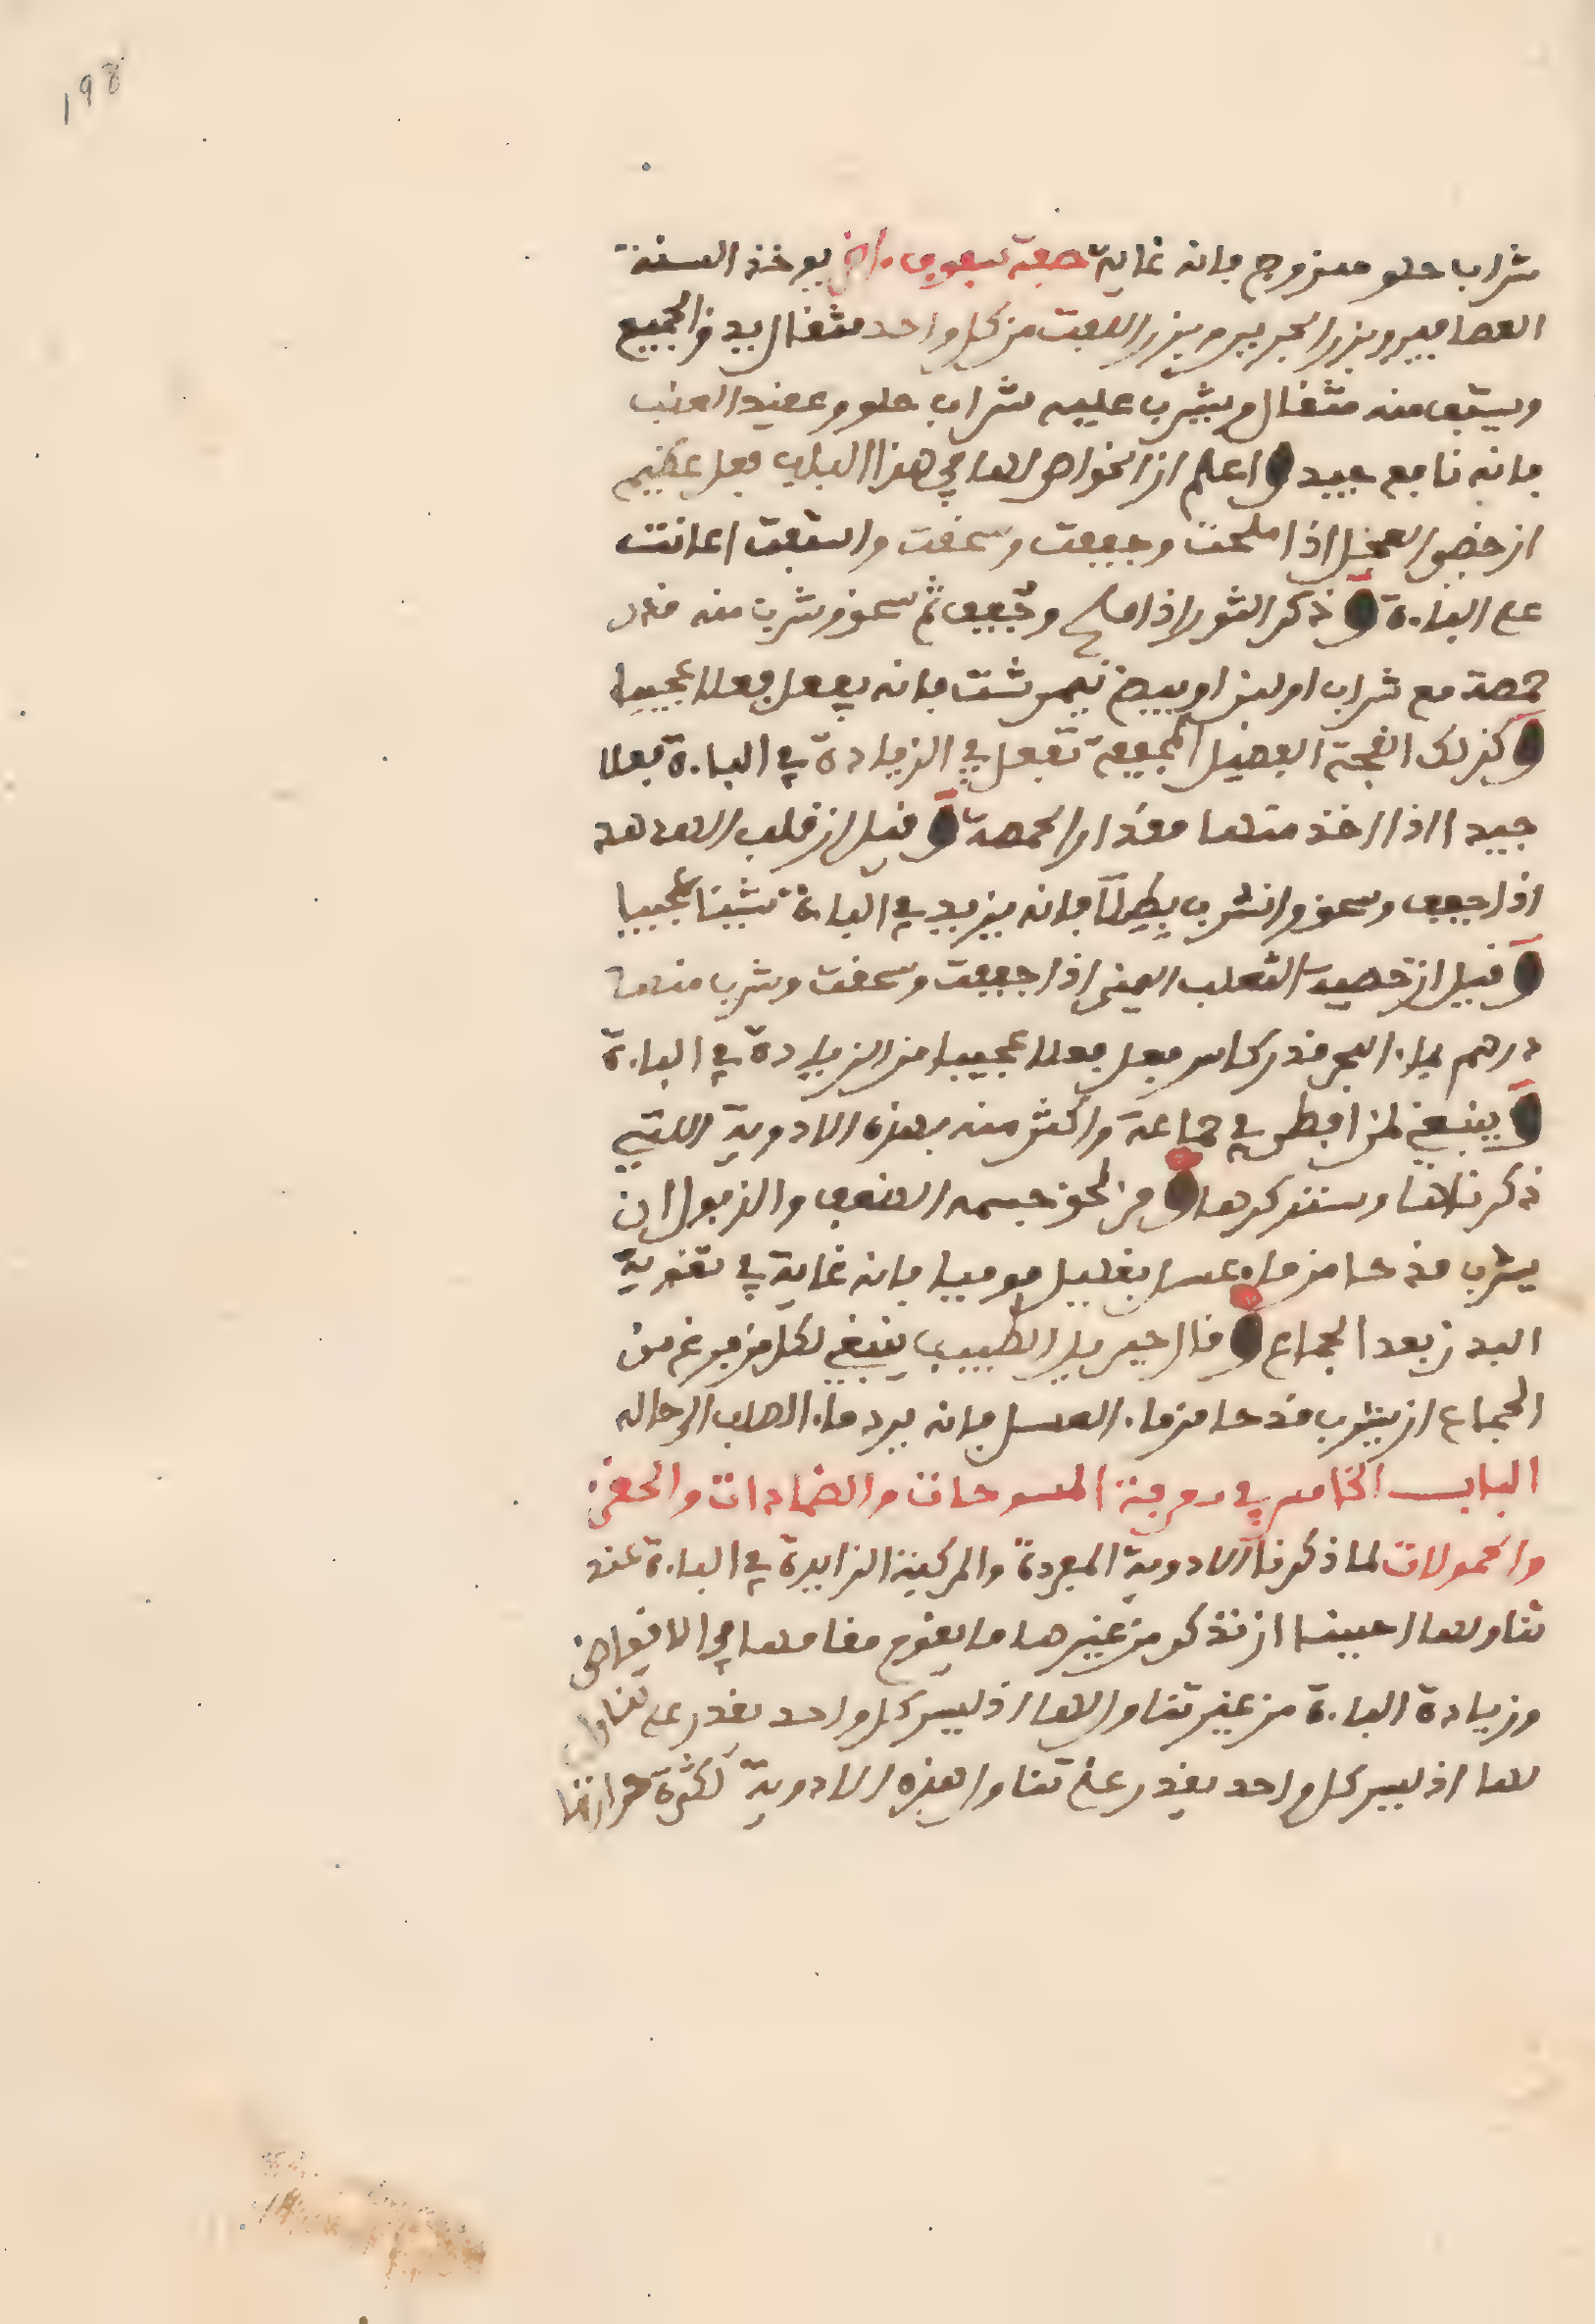 198
شراب حلو ممزوج فانه غاية صفة سفوف اخر يوخذ السنة
العصافير وبزر الجرجير وبزر اللفت من كل واحد مثقال يدق الجميع
ويستف منه مثقال ويشرب عليه شراب حلو وعقيد العنب
فانه نافع جيد واعلم ان الخواص لها في هذا الباب فعل عظيم
ان خصى العجل اذا ملحت وجففت وسحقت واستفت اعانت
على الباءة وذكر الثور اذا ملح وجفف ثم سحق وشرب منه قدر
حمصة مع شراب او لبن او بيض نيمرشت فانه يفعل فعلا عجيبا
وكذلك انفحة الفصيل المجففة تفعل في الزيادة في الباءة فعلا
جيدا اذا اخذ منها مقدار الحمصة وقيل ان قلب الهدهد
اذا جفف وسحق وشرب بطلا فانه يزيد في الباءة شيئا عجيبا
وقيل ان خصية الثعلب اليمنى اذا جففت وسحقت وشرب منها
درهم بماء البحر قدر كاس فعل فعلا عجيبا من الزيادة في الباءة
وينبغي لمن افطر في جماعه واكثر منه بهذه الادوية اللتي
ذكرناها وسنذكرها ومن لحق جسمه الضعف والذبول ان
يشرب قدحا من ماء عسل بقليل موميا فانه غاية في تقوية
البدن بعد الجماع وقال جبريل الطبيب ينبغي لكل من فرغ من
الجماع ان يشرب قدحا من ماء العسل فانه يرد ماء الصلب الى حاله
الباب الخامس في معرفة المسوحات والضمادات والحقن
والحمولات لما ذكرنا الادوية المفردة والمركبة الزايدة في الباءة عند
تناولها احببنا ان نذكر من غيرها ما يقوم مقامها في الانعاض
وزيادة الباءة من غير تناولها اذ ليس كل واحد يقدر على تناول
لها اذ ليس كل واحد يقدر على تناول هذه الادوية لكثرة حرارتها